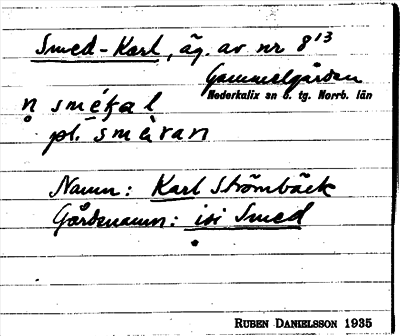 Smed-Karl, äg. av nr 8¹³
Gammelgården
Nederkalix sn ö. tg. Norrb. län
n̥ smékal
pl. smèvan
Namn: Karl Strömbäck
Gårdsnamn: isi Smed
RUBEN DANIELSSON 1935